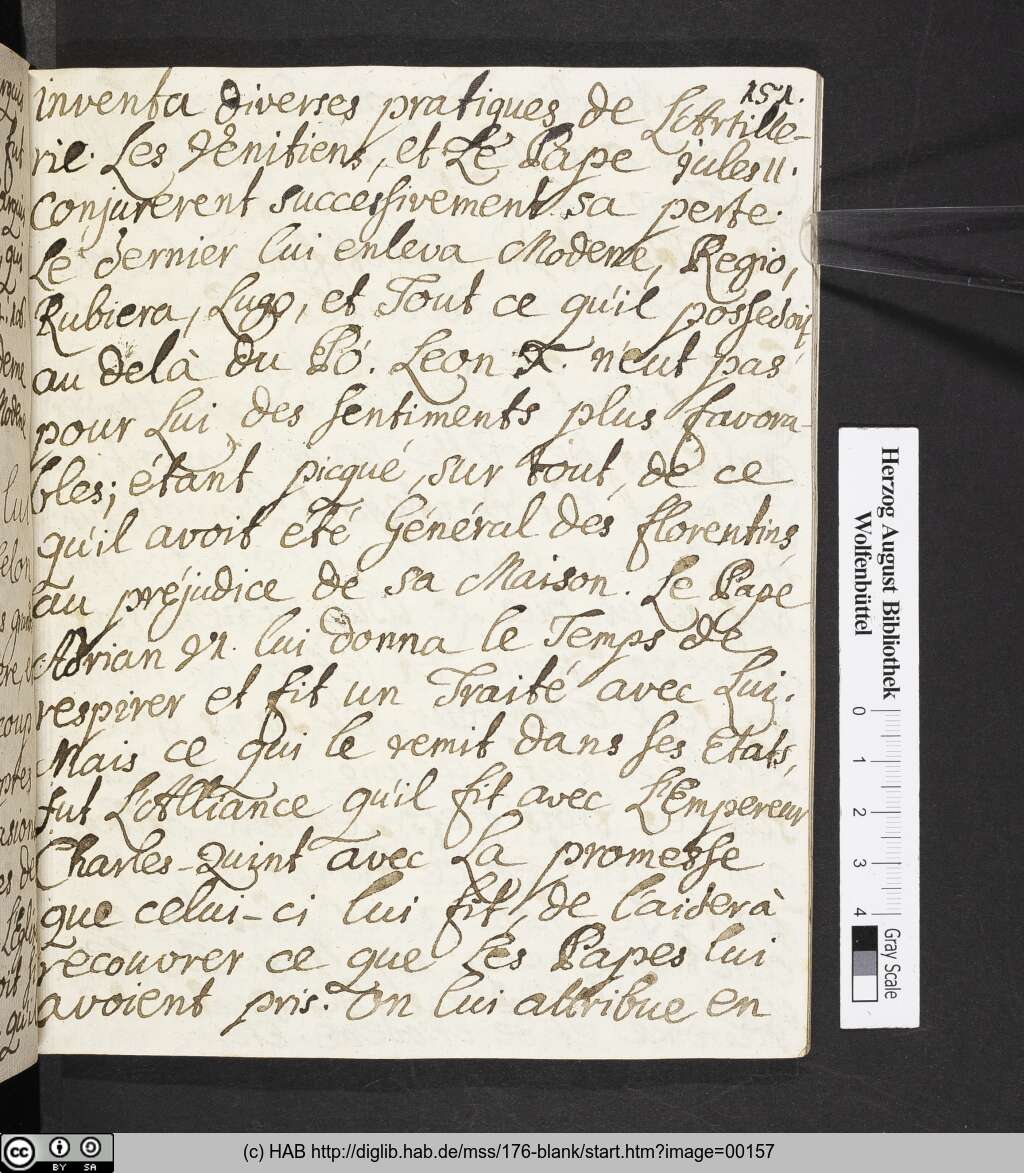 151.
inventa diverses pratiques de L'Artille-
rie. Les Vénitiens, et Le Pape Jules II.
conjurerent successivement sa perte.
Le dernier lui enleva Modene, Regio,
Rubiera, Lugo, et Tout ce qu'il possedoit
au delà du Pó. Leon X. n'eut pas
pour Lui des sentiments plus favora-
bles; étant picqué, sur tout, de ce
qu'il avoit été Général des florentins,
au préjudice de sa Maison. Le Pape
Adrian VI. lui donna le Temps de
respirer et fit un Traité avec Lui.
Mais ce qui le remit dans ses Etats,
fut L'Alliance qu'il fit avec L'Empereur
Charles-Quint avec La promesse
que celui-ci lui fit, de l'aider à
recouvrer ce que Les Papes lui
avoient pris. On lui attribue en
Herzog August Bibliothek
Wolfenbüttel
0 1 2 3 4
Gray Scale
cc BY SA
(c) HAB http://diglib.hab.de/mss/176-blank/start.htm?image=00157